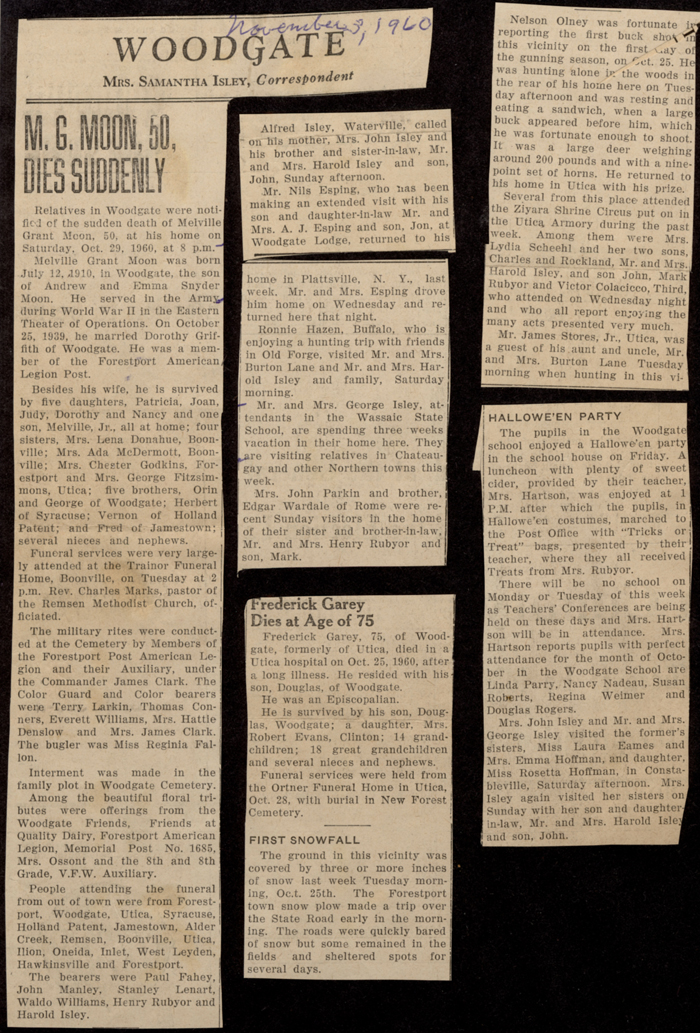 November 3, 1960
WOODGATE
MRS. SAMANTHA ISLEY, Correspondent
M. G. MOON, 50,
DIES SUDDENLY
Relatives in Woodgate were noti-
fied of the sudden death of Melville
Grant Moon, 50, at his home on
Saturday, Oct. 29, 1960, at 8 p.m.
Melville Grant Moon was born
July 12, 1910, in Woodgate, the son
of Andrew and Emma Snyder
Moon. He served in the Army
during World War II in the Eastern
Theater of Operations. On October
25, 1939, he married Dorothy Grif-
fith of Woodgate. He was a mem-
ber of the Forestport American
Legion Post.
Besides his wife, he is survived
by five daughters, Patricia, Joan,
Judy, Dorothy and Nancy and one
son, Melville, Jr., all at home; four
sisters, Mrs. Lena Donahue, Boon-
ville; Mrs. Ada McDermott, Boon-
ville; Mrs. Chester Godkins, For-
estport and Mrs. George Fitzsim-
mons, Utica; five brothers, Orin
and George of Woodgate; Herbert
of Syracuse; Vernon of Holland
Patent; and Fred of Jamestown;
several nieces and nephews.
Funeral services were very large-
ly attended at the Trainor Funeral
Home, Boonville, on Tuesday at 2
p.m. Rev. Charles Marks, pastor of
the Remsen Methodist Church, of-
ficiated.
The military rites were conduct-
ed at the Cemetery by Members of
the Forestport Post American Le-
gion and their Auxiliary, under
the Commander James Clark. The
Color Guard and Color bearers
were Terry Larkin, Thomas Con-
ners, Everett Williams, Mrs. Hattie
Denslow and Mrs. James Clark.
The bugler was Miss Reginia Fal-
lon.
Interment was made in the
family plot in Woodgate Cemetery.
Among the beautiful floral tri-
butes were offerings from the
Woodgate Friends, Friends at
Quality Dairy, Forestport American
Legion, Memorial Post No. 1685,
Mrs. Ossont and the 8th and 8th
Grade, V.F.W. Auxiliary.
People attending the funeral
from out of town were from Forest-
port, Woodgate, Utica, Syracuse,
Holland Patent, Jamestown, Alder
Creek, Remsen, Boonville, Utica,
Ilion, Oneida, Inlet, West Leyden,
Hawkinsville and Forestport.
The bearers were Paul Fahey,
John Manley, Stanley Lenart,
Waldo Williams, Henry Rubyor and
Harold Isley.
Alfred Isley, Waterville, called
on his mother, Mrs. John Isley and
his brother and sister-in-law, Mr.
and Mrs. Harold Isley and son,
John, Sunday afternoon.
Mr. Nils Esping, who has been
making an extended visit with his
son and daughter-in-law Mr. and
Mrs. A. J. Esping and son, Jon, at
Woodgate Lodge, returned to his
home in Plattsville, N. Y., last
week. Mr. and Mrs. Esping drove
him home on Wednesday and re-
turned here that night.
Ronnie Hazen, Buffalo, who is
enjoying a hunting trip with friends
in Old Forge, visited Mr. and Mrs.
Burton Lane and Mr. and Mrs. Har-
old Isley and family, Saturday
morning.
Mr. and Mrs. George Isley, at-
tendants in the Wassaic State
School, are spending three weeks
vacation in their home here. They
are visiting relatives in Chateau-
gay and other Northern towns this
week.
Mrs. John Parkin and brother,
Edgar Wardale of Rome were re-
cent Sunday visitors in the home
of their sister and brother-in-law,
Mr. and Mrs. Henry Rubyor and
son, Mark.
Frederick Garey
Dies at Age of 75
Frederick Garey, 75, of Wood-
gate, formerly of Utica, died in a
Utica hospital on Oct. 25, 1960, after
a long illness. He resided with his
son, Douglas, of Woodgate.
He was an Episcopalian.
He is survived by his son, Doug-
las, Woodgate; a daughter, Mrs.
Robert Evans, Clinton; 14 grand-
children; 18 great grandchildren
and several nieces and nephews.
Funeral services were held from
the Ortner Funeral Home in Utica,
Oct. 28, with burial in New Forest
Cemetery.
FIRST SNOWFALL
The ground in this vicinity was
covered by three or more inches
of snow last week Tuesday morn-
ing, Oc.t. 25th. The Forestport
town snow plow made a trip over
the State Road early in the morn-
ing. The roads were quickly bared
of snow but some remained in the
fields and sheltered spots for
several days.
Nelson Olney was fortunate in
reporting the first buck shot in
this vicinity on the first day of
the gunning season, on Oct. 25. He
was hunting alone in the woods in
the rear of his home here on Tues-
day afternoon and was resting and
eating a sandwich, when a large
buck appeared before him, which
he was fortunate enough to shoot.
It was a large deer weighing
around 200 pounds and with a nine-
point set of horns. He returned to
his home in Utica with his prize.
Several from this place attended
the Ziyara Shrine Circus put on in
the Utica Armory during the past
week. Among them were Mrs.
Lydia Scheehl and her two sons,
Charles and Rockland, Mr. and Mrs.
Harold Isley, and son John, Mark
Rubyor and Victor Colacicco, Third,
who attended on Wednesday night
and who all report enjoying the
many acts presented very much.
Mr. James Stores, Jr., Utica, was
a guest of his aunt and uncle, Mr.
and Mrs. Burton Lane Tuesday
morning when hunting in this vi-
HALLOWE'EN PARTY
The pupils in the Woodgate
school enjoyed a Hallowe'en party
in the school house on Friday. A
luncheon with plenty of sweet
cider, provided by their teacher,
Mrs. Hartson, was enjoyed at 1
P.M. after which the pupils, in
Hallowe'en costumes, marched to
the Post Office with "Tricks or
Treat" bags, presented by their
teacher, where they all received
Treats from Mrs. Rubyor.
There will be no school on
Monday or Tuesday of this week
as Teachers' Conferences are being
held on these days and Mrs. Hart-
son will be in attendance. Mrs.
Hartson reports pupils with perfect
attendance for the month of Octo-
ber in the Woodgate School are
Linda Parry, Nancy Nadeau, Susan
Roberts, Regina Weimer and
Douglas Rogers.
Mrs. John Isley and Mr. and Mrs.
George Isley visited the former's
sisters, Miss Laura Eames and
Mrs. Emma Hoffman, and daughter,
Miss Rosetta Hoffman, in Consta-
bleville, Saturday afternoon. Mrs.
Isley again visited her sisters on
Sunday with her son and daughter-
in-law, Mr. and Mrs. Harold Isley
and son, John.